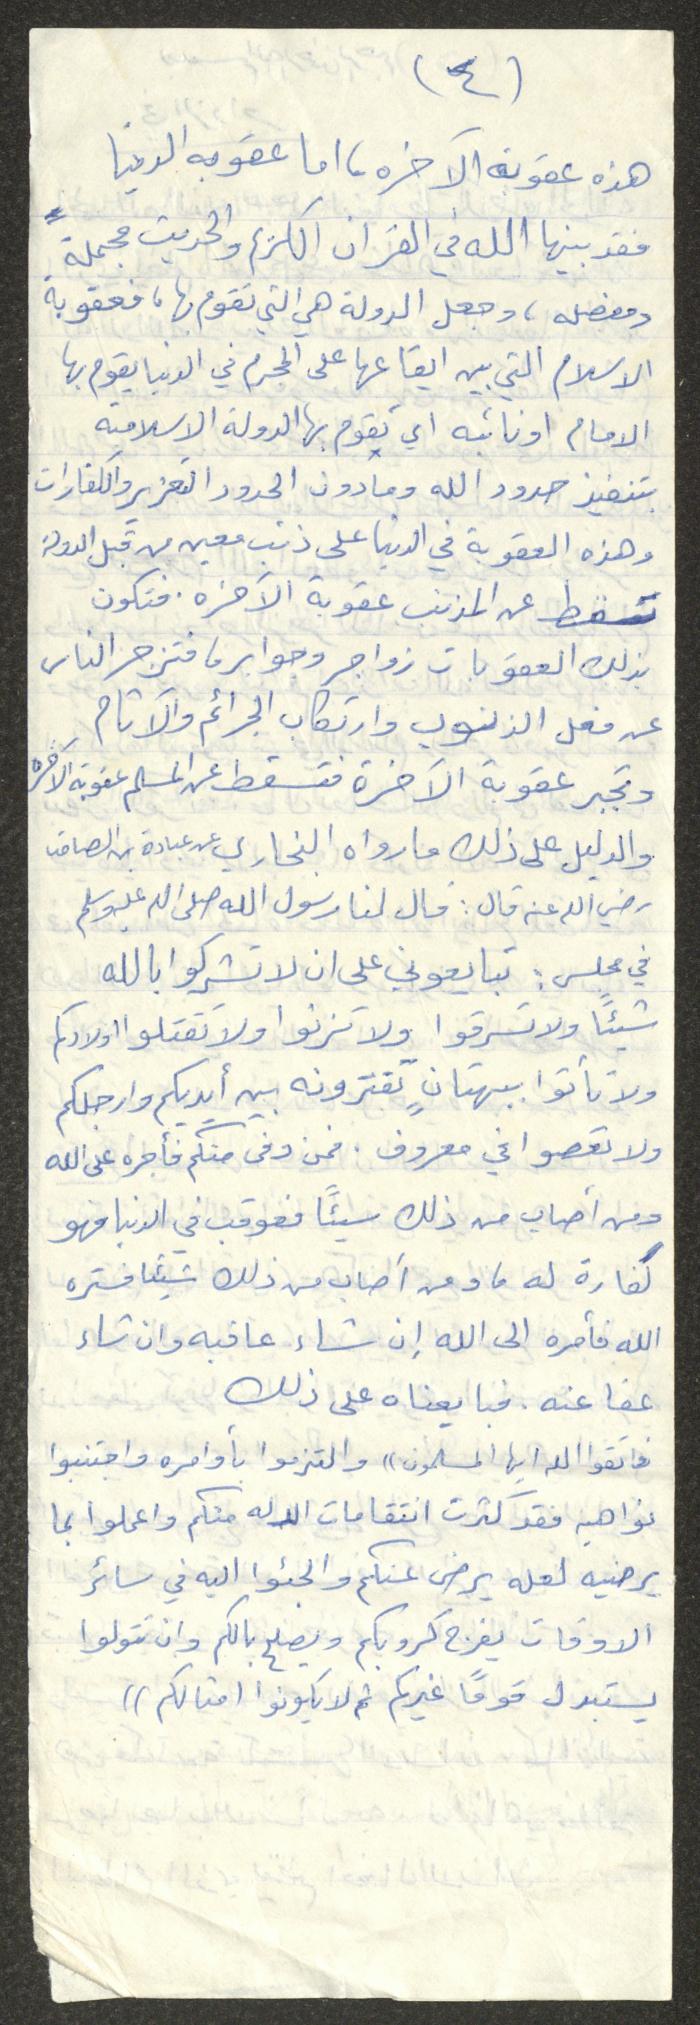 (٤)
هذه عقوبة الآخره، اما عقوبه الدنيا
فقد بينها الله في القرآن الكريم والحديث مجملةً
ومفصله، وجعل الدولة هي التي تقوم بها، فعقوبة
الاسلام التي بين ايقاعها على المجرم في الدنيا يقوم بها
الامام او نائبه اي تقوم بها الدولة الاسلامية
بتنفيذ حدود الله وما دون الحدود التعزير والكفارات
وهذه العقوبة في الدنيا على ذنب معين من قبل الدولة
تسقط عن المذنب عقوبة الآخره. فتكون
بذلك العقوبات زواجر وجوابر، فتزجر الناس
عن فعل الذنوب وارتكاب الجرائم والآثام
وتجبر عقوبة الآخرة فتسقط عن المسلم عقوبة الآخره
والدليل على ذلك ما رواه البخاري عن عبادة بن الصامت
رضي الله عنه قال: قال لنا رسول الله صلى الله عليه وسلم
في مجلس: تبايعوني على ان لا تشركوا بالله
شيئًا ولا تسرقوا ولا تزنوا ولا تقتلوا اولادكم
ولا تأتوا ببهتانٍ تفترونه بين أيديكم وارجلكم
ولا تعصوا في معروف. فمن وفى منكم فأجره على الله
ومن أصاب من ذلك شيئًا فعوقب في الدنيا فهو
كفارة له، ومن أصاب من ذلك شيئًا فستره
الله فأمره الى الله إن شاء عاقبه وان شاء
عفا عنه. فبايعناه على ذلك
فاتقوا الله ايها المسلمون)) والتزموا بأوامره واجتنبوا
نواهيه فقد كثرت انتقامات الله منكم واعملوا بما
يرضيه لعله يرضى عنكم والجئوا اليه في سائر
الاوقات يفرج كروبكم ويصلح بالكم وان تتولوا
يستبدل قومًا غيركم ثم لا يكونوا امثالكم))